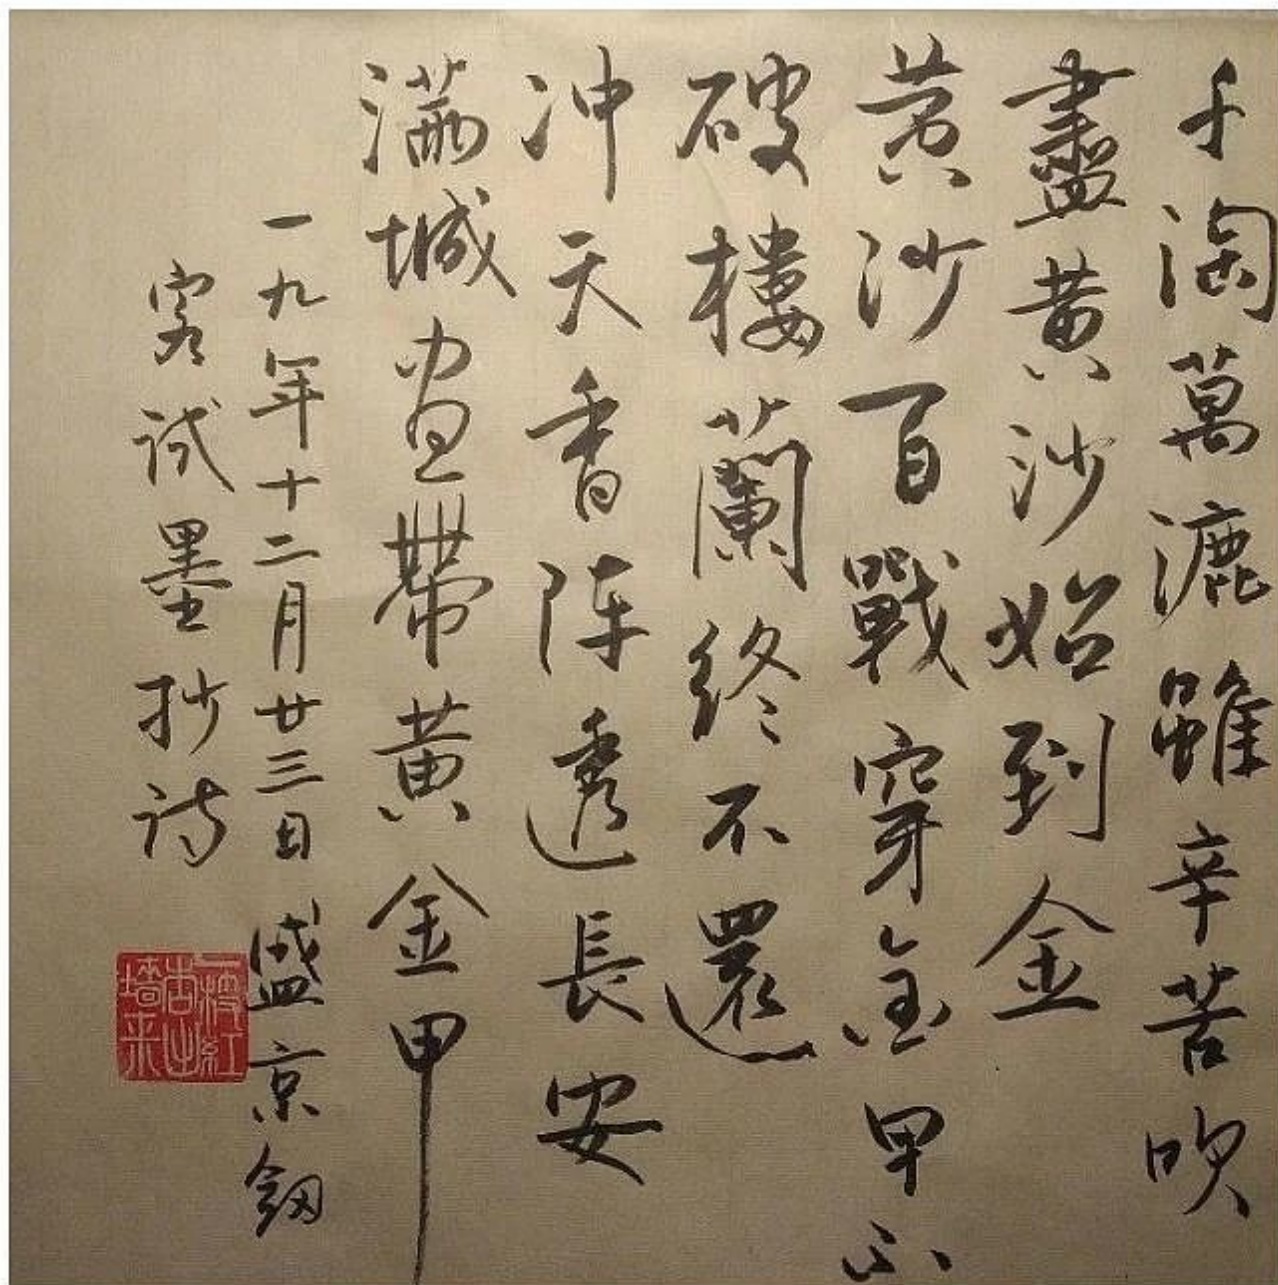 千淘萬漉雖辛苦吹
盡黄沙始到金
黄沙百戰穿金甲不
破樓蘭終不還
冲天香陣透長安
滿城盡帶黄金甲
一九年十二月廿三日 盛京劔
客試墨抄詩
一枝紅
杏出
墻来